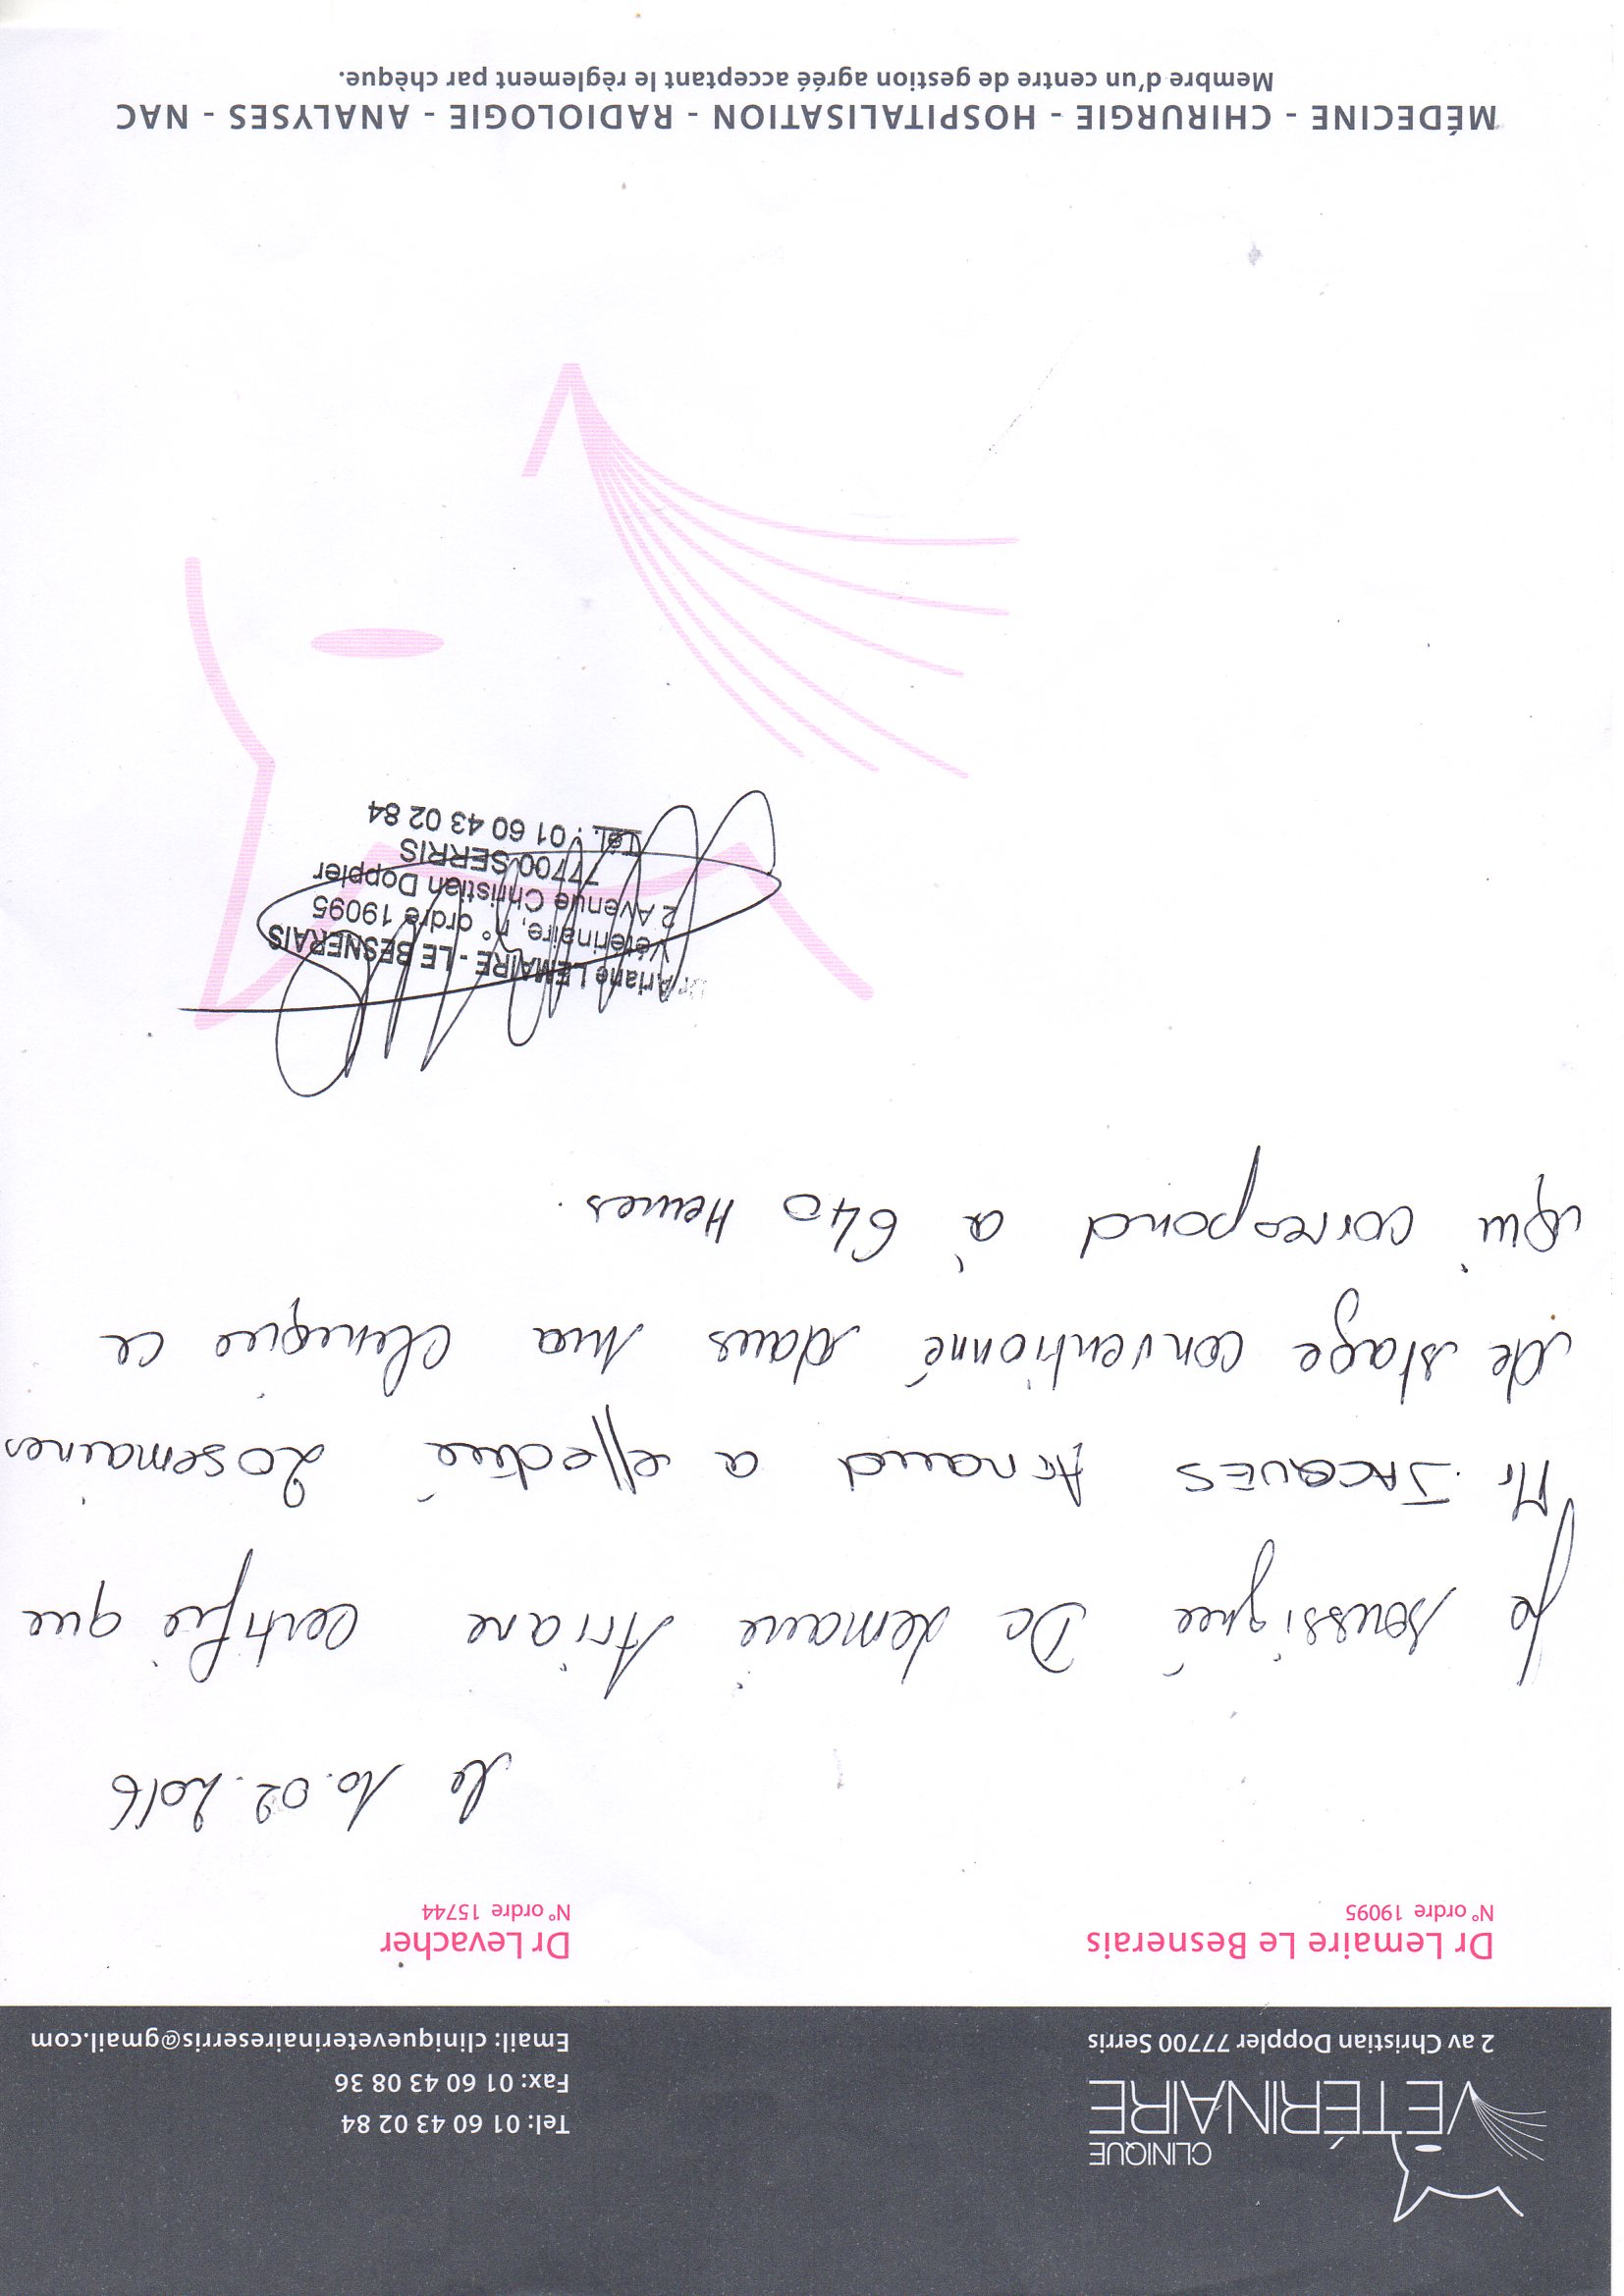 CLINIQUE
VÉTÉRINAIRE
2 av Christian Doppler 77700 Serris
Tel: 01 60 43 02 84
Fax: 01 60 43 08 36
Email: cliniqueveterinaireserris@gmail.com
Dr Lemaire Le Besnerais
N° ordre 19095
Dr Levacher
N° ordre 15744
Le 10.02.2016
Je soussignée Dr Lemaire Ariane certifie que
Mr JACQUES Arnaud a effectué 20 semaines
de stage conventionné dans ma clinique ce
qui correspond à 640 Heures.
Dr Ariane LEMAIRE - LE BESNERAIS
Vétérinaire, n° ordre 19095
2 Avenue Christian Doppler
77700 SERRIS
Tél. : 01 60 43 02 84
MÉDECINE - CHIRURGIE - HOSPITALISATION - RADIOLOGIE - ANALYSES - NAC
Membre d'un centre de gestion agréé acceptant le règlement par chèque.